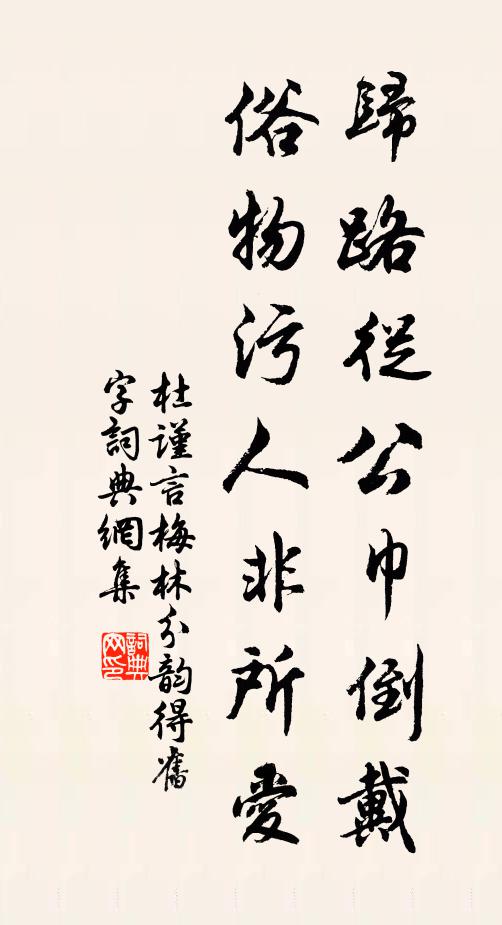 歸路從公巾倒戴
俗物污人非所愛
杜謹言梅林分韵得舊
字詞典網集